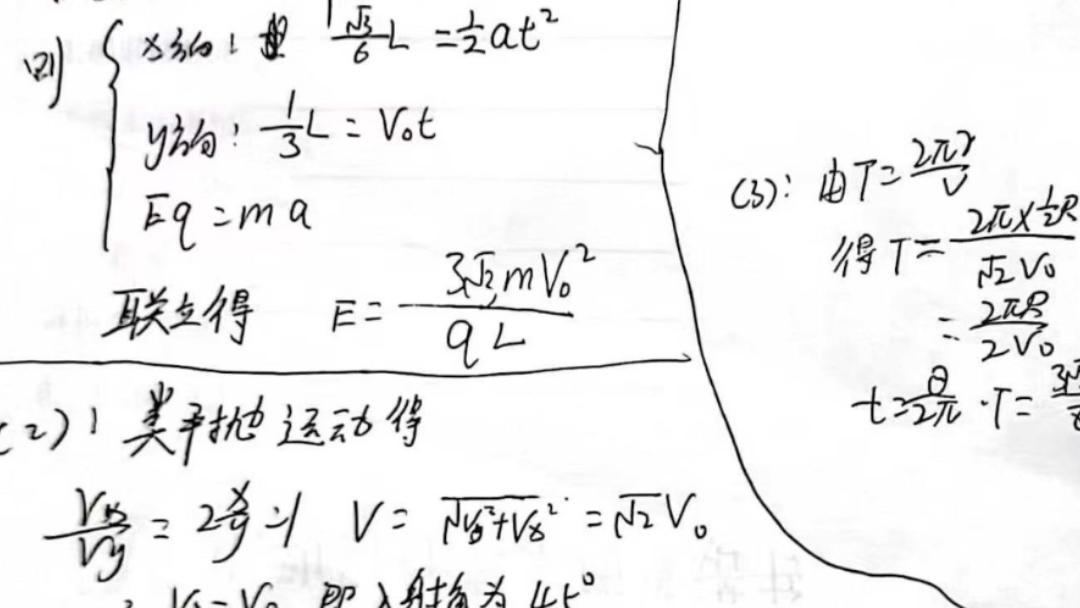 则 x方向: √3/6 L = 1/2 at²
y方向: 1/3 L = V₀t
Eq = ma
联立得 E = 3√2 mV₀² / qL
(2): 类平抛运动得
Vx/Vy = 2x/y = 1 V = √(Vy²+Vx²) = √2 V₀
即入射角为 45°
(3): 由 T = 2πr/V
得 T = 2π×½R / √2 V₀
= 2πR / 2V₀
t = θ/2π · T =